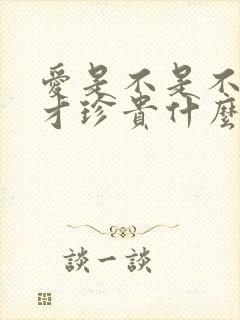 愛是不是不
才珍貴什麼
談一談